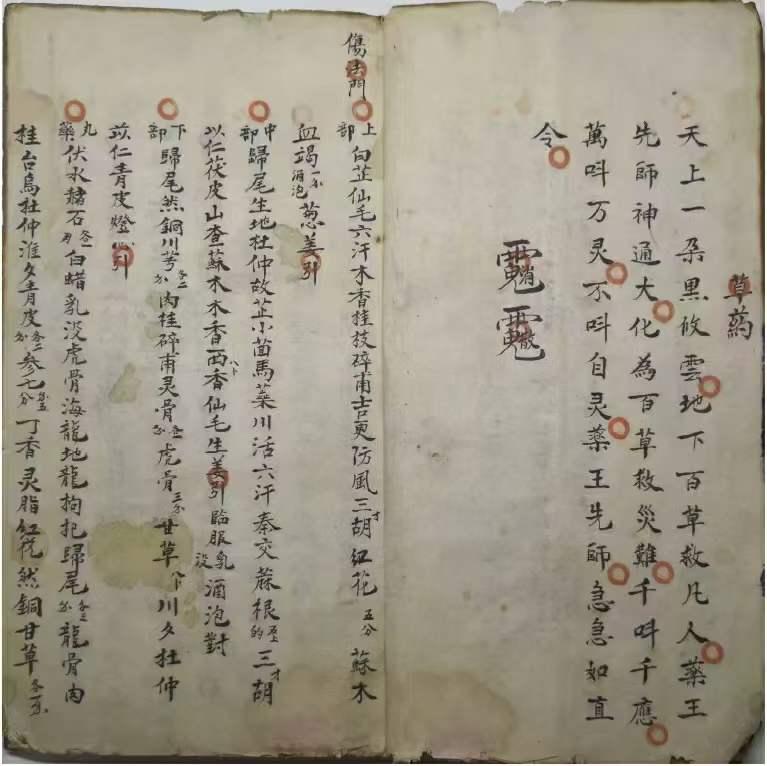 草药
天上一朵黑攸雲地下百草救凡人藥王
先師神通大化為百草救災難千呌千應
萬呌万灵不呌自灵藥王先師急急如直
令
消
散
傷法門
上部 白芷仙毛六汗木香桂枝碎甫吉更防風三胡紅花五分蘇木
血竭一分酒泡葱姜引
中部 歸尾生地杜仲故芷小茴馬藥川活六汗秦交蔴根三胡
苡仁茯皮山查蘇木木香西香仙毛生姜引臨服乳没酒泡對
下部 歸尾然銅川芎各二分肉桂碎甫灵骨虎骨三分甘草八卜川夕杜仲
苡仁青皮燈心引
九藥 伏水赭石各一白蜡乳没虎骨海龍地龍拘杞歸尾各三分龍骨肉
桂台烏杜仲淮夕青皮各二分参七各五分丁香灵脂紅花然銅甘草各一分